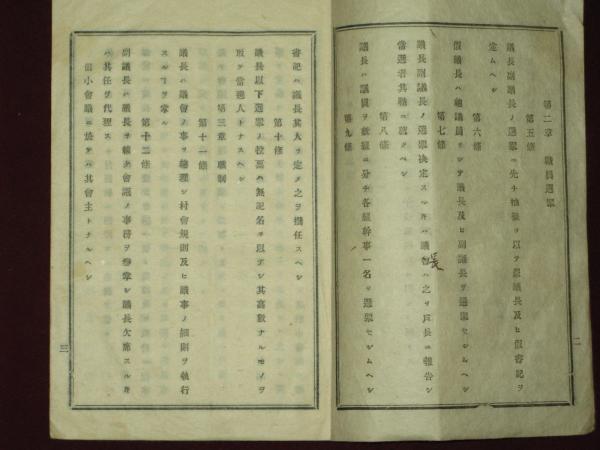 第二章 職員選挙
第五條
議長副議長ノ選挙ニ先チ抽籤ヲ以テ假議長及ヒ假書記ヲ
定ムヘシ
第六條
假議長ハ總議員ヲシテ議長及ヒ副議長ヲ選挙セシムヘシ
第七條
議長副議長ノ選挙決定スルキハ議長ハ之ヲ戸長ニ報告シ
當選者其職ニ就クヘシ
第八條
議長ハ議員ヲ數組ニ分チ各組幹事一名ヲ選挙セシムヘシ
第九條
二
書記ハ議長其人ヲ定メ之ヲ擔任スヘシ
第十條
議長以下選挙ノ投票ハ無記名ヲ以テシ其高數ナルモノヲ
取テ當選人トナスヘシ
第三章 職制
第十一條
議長ハ議會ノ事ヲ總理シ村會規則及ヒ議事ノ細則ヲ執行
スルヿヲ掌ル
第十二條
副議長ハ議長ヲ輔ケ會議ノ事務ヲ参掌シ議長欠席スルキ
ハ其任ヲ代理ス
但小會議ニ於テハ其會主トナルヘシ
三